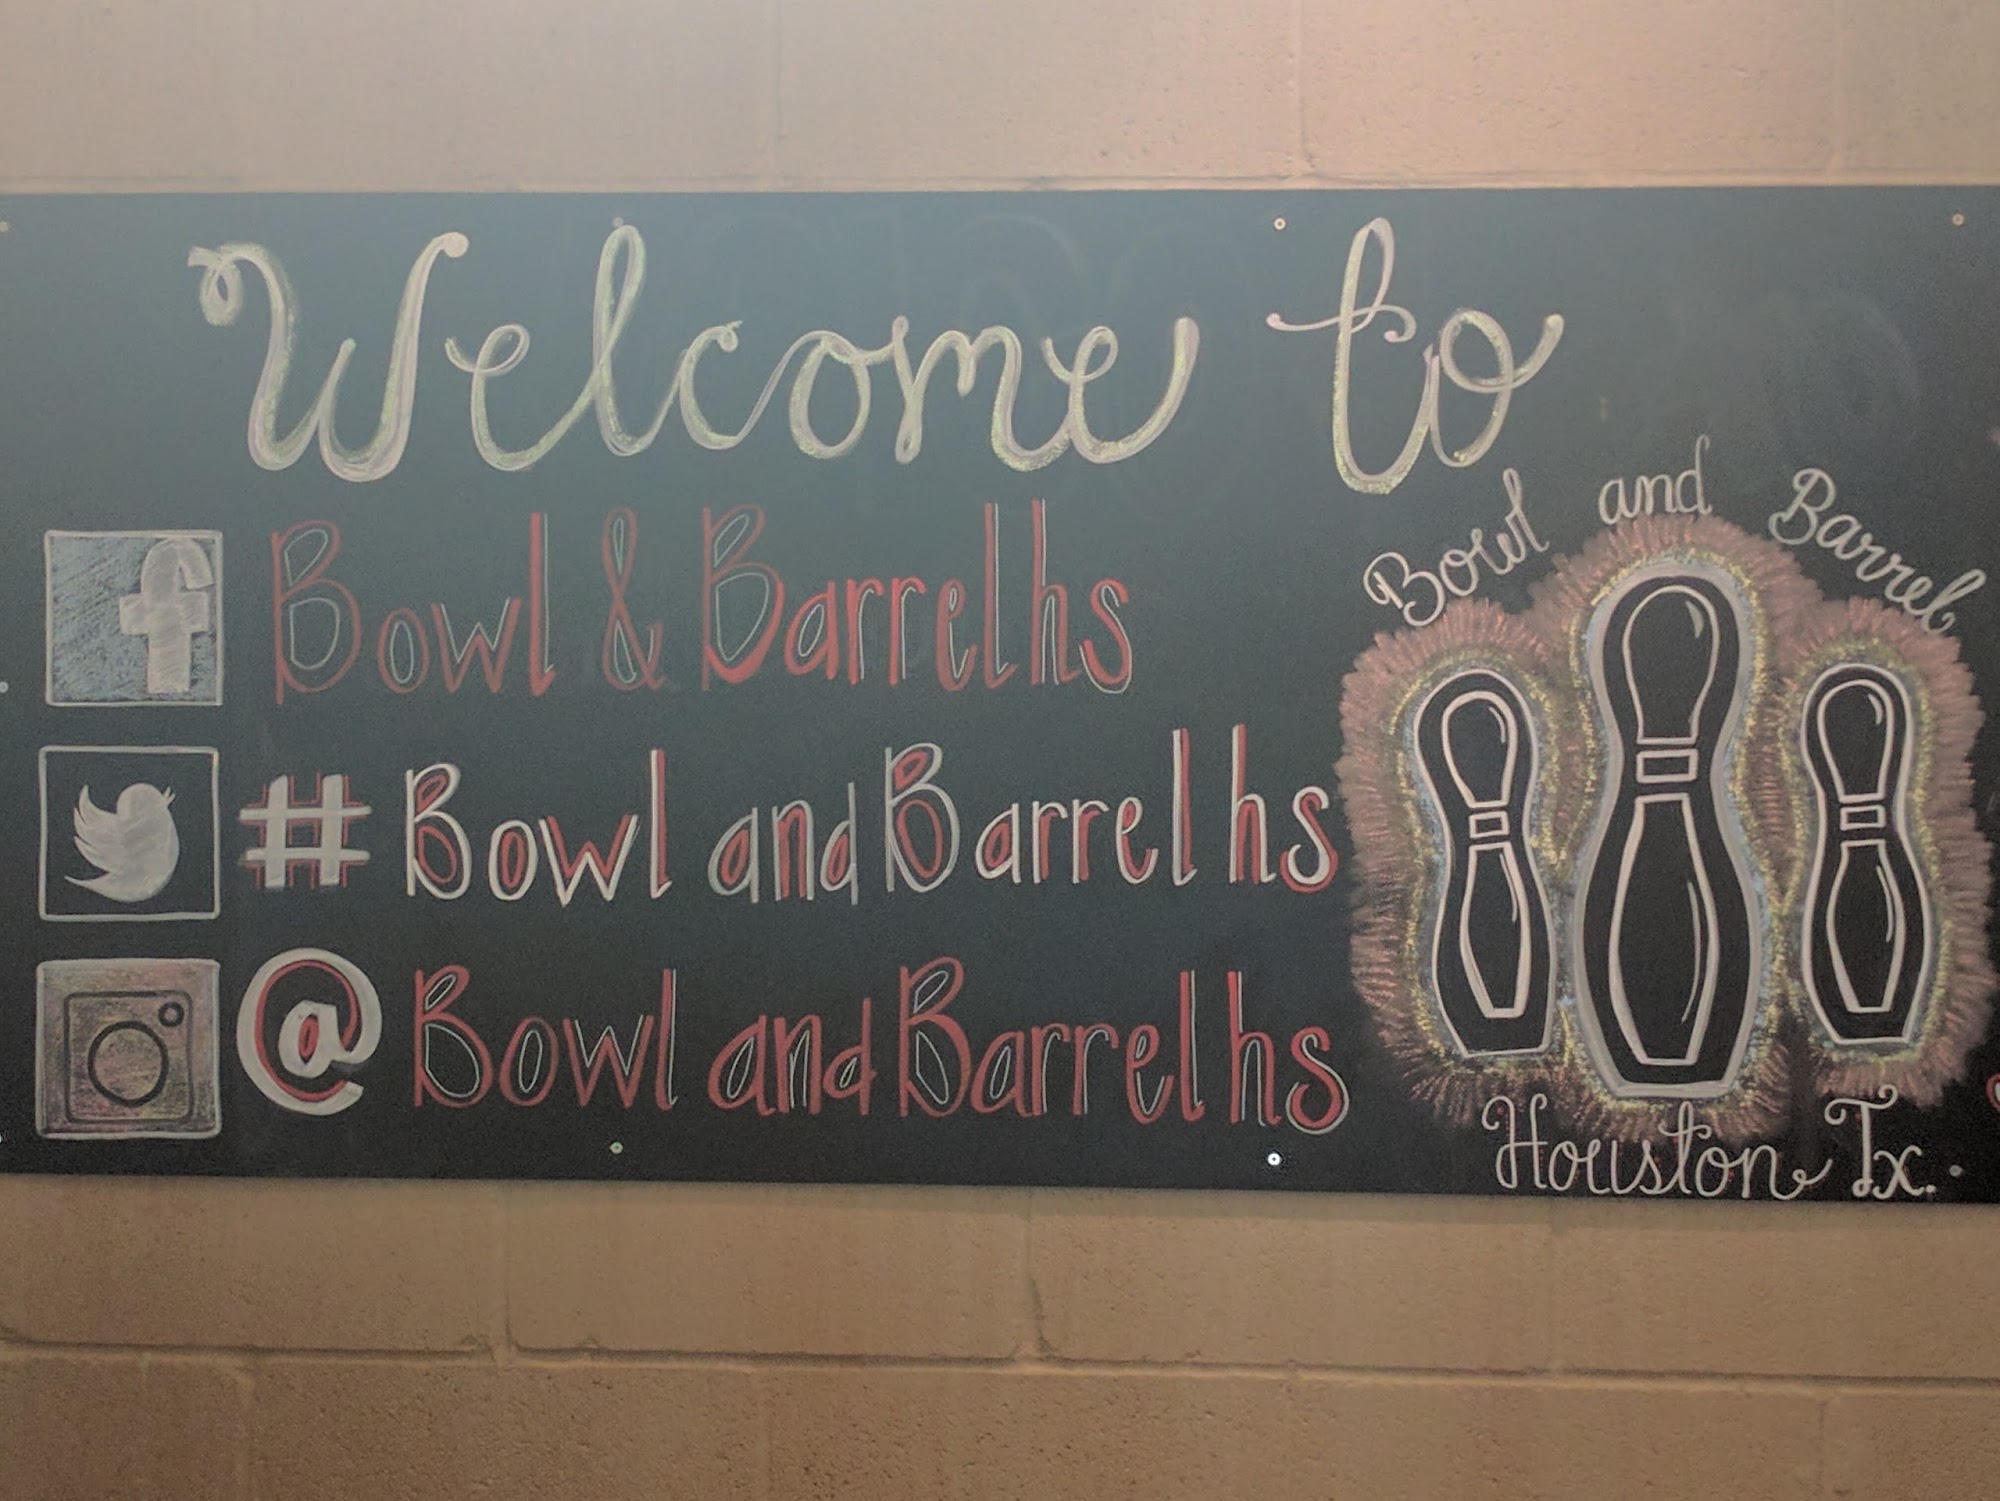 Welcome to
Bowl & Barrelhs
# Bowl and Barrel hs
@ Bowl and Barrel hs
Bowl and Barrel
Houston Tx.